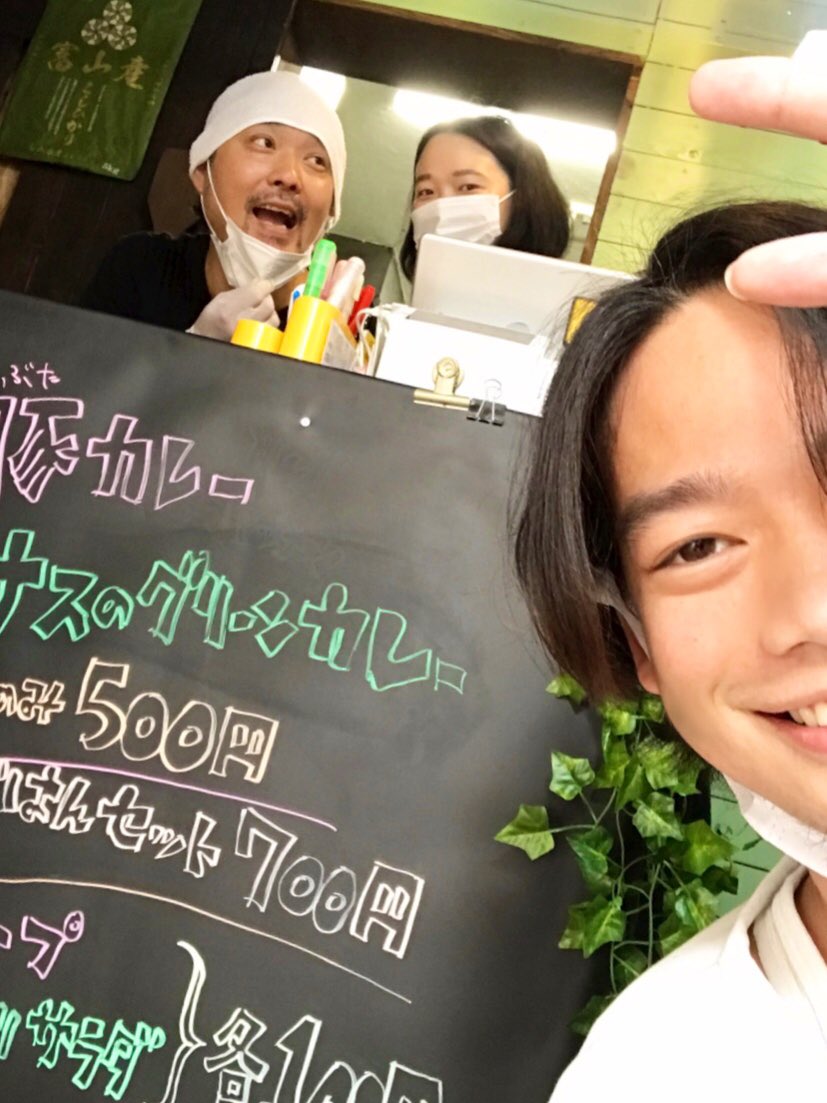 富山産
こしひかり
ぶた
豚カレー
ナスのグリーンカレー
のみ 500円
ごはんセット 700円
ープ
サラダ } 各100円